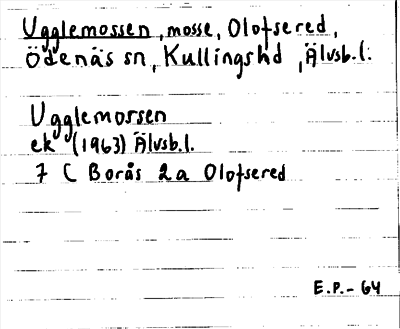 Ugglemossen, mosse, Olofsered,
Ödenäs sn, Kullingshd, Älvsb.l.
Ugglemossen
ek (1963) Älvsb.l.
7 C Borås 2a Olofsered
E.P.-64